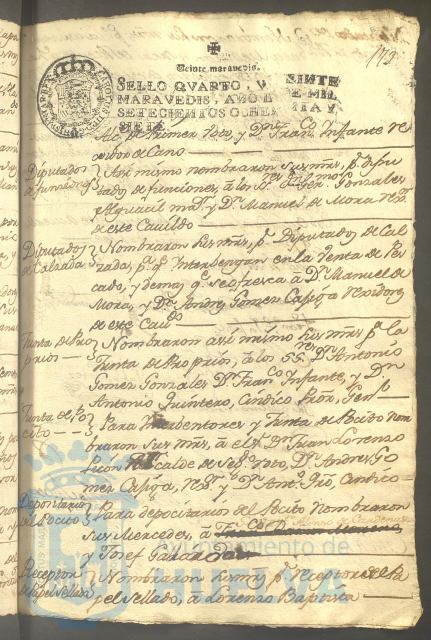 173
Veinte maravedis.
SELLO QVARTO, VEINTE
MARAVEDIS, AÑO DE MIL
SETECIENTOS OCHENTA Y
SIETE
Alc. de Primer Voto, y Dn. Franco. Infante Re
xidor de Cano
Diputados de funciones
Asi mismo nombraron sus mrds. pr. Dipu
tados de funciones, a los Sres. Gonzales
Alguacil mor. y Dn. Manuel de Mora Rexor.
de este Cavildo
Diputados de Calzada
Nombraron sus mrds. pr. Diputados de Cal
zadas, pa. qe. Intervengan en la Venta de Pes
cado, y demas qe. se ofresca a Dn. Manuel de
Mora, y Dn. Andres Gomez Rexidores
de este Cavdo.
Junta de Pro
prios
Nombraron asi mismo sus mrds. pa. la
Junta de Proprios, a los SSres. Dn. Antonio
Gomez Gonzales Dn. Franco. Infante, y Dn.
Antonio Quintero, Cindico Pror. Genl.
Junta de Po
cito
Para Interventores y Junta de Pocito nom
braron sus mrds. a el Sr. Dn. Juan Lorenzo
León Alcalde de Segdo. Voto, Dn. Andres Go
mez Rexr. y Dn. Anto. Cindico
Depositario
del Pocito
Para depocitarios del Pocito Nombraron
sus Mercedes, a
y Josef
Receptor
de Papel sellado
Nombraron sus mrds. pr. Receptor del Pa
pel sellado, a Lorenzo Baptista
Ayuntamiento de
HUELVA